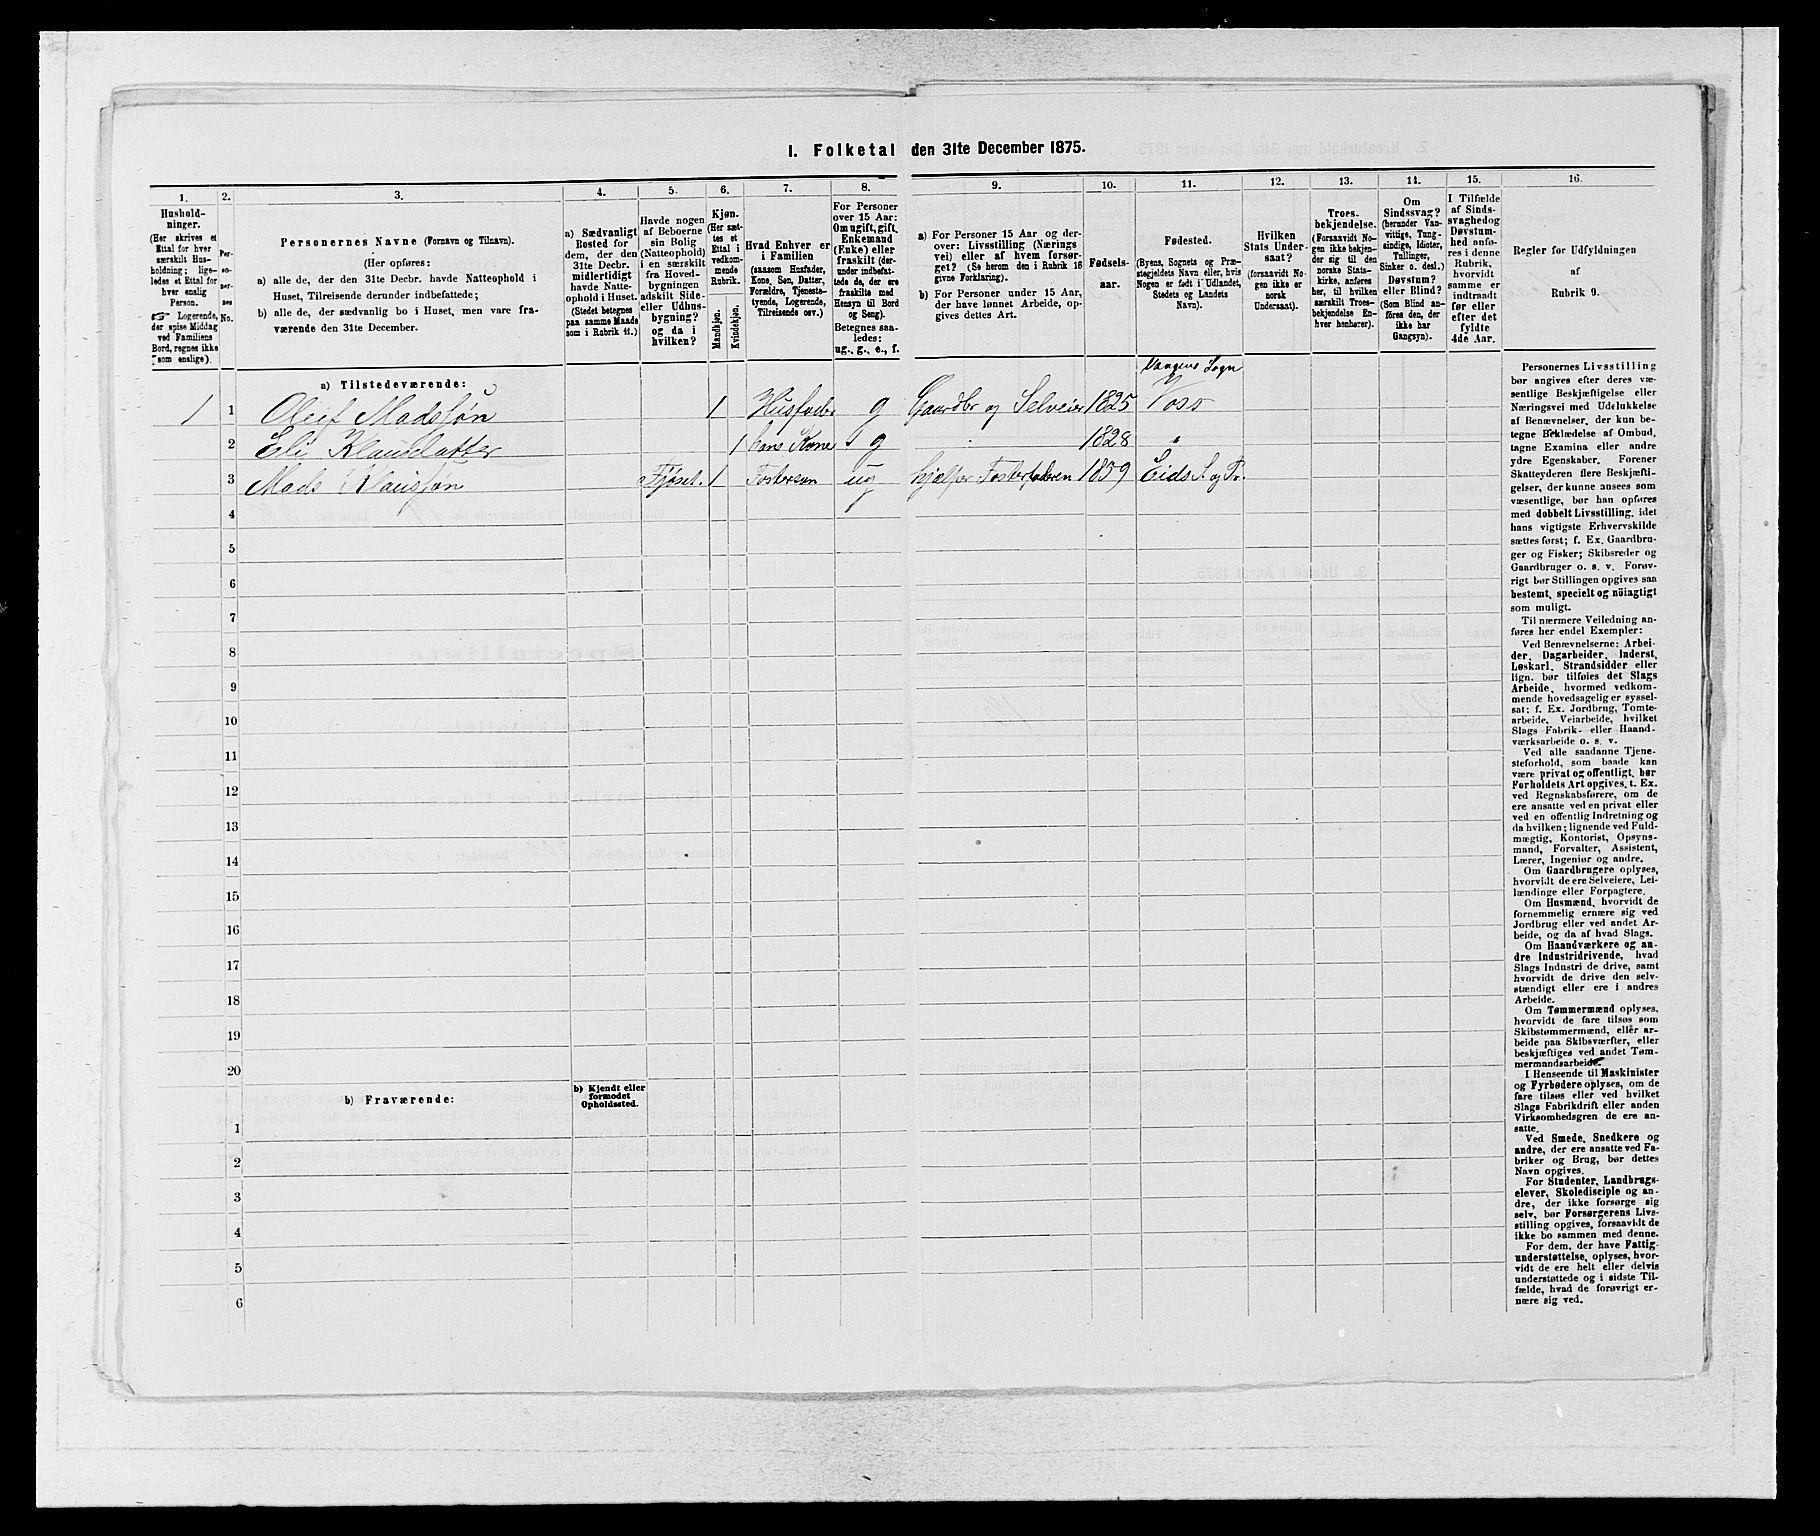 1. Folketal den 31te December 1875.
1. 2. 3. 4. 5. 6. 7. 8. 9. 10. 11. 12. 13. 14. 15. 16.
Hushold-
ninger.
(Her skrives et
Ettal for hver
særskilt Hus-
holdning; lige-
ledes et Ettal for
hver enslig
Person.
☞ Logerende,
der spise Middag
ved Familiens
Bord, regnes ikke
som enslige).
Per-
so-
ner-
nes
No.
Personernes Navne (Fornavn og Tilnavn).
(Her opføres:
a) alle de, der den 31te Decbr. havde Natteophold i
Huset, Tilreisende derunder indbefattede;
b) alle de, der sædvanlig bo i Huset, men vare fra-
værende den 31te December.
a) Sædvanligt
Bosted for
dem, der den
31te Decbr.
midlertidigt
havde Natte-
ophold i Huset.
(Stedet betegnes
paa samme Maade
som i Rubrik 11.)
Havde nogen
af Beboerne
sin Bolig
(Natteophold)
i en særskilt
fra Hoved-
bygningen
adskilt Side-
eller Udhus-
bygning?
og da i
hvilken?
Kjøn.
(Her sæt-
tes et
Ettal i
vedkom-
mende
Rubrik.
Mandkjøn.
Kvindekjøn.
Hvad Enhver er
i Familien
(saasom Husfader,
Kone, Søn, Datter,
Forældre, Tjeneste-
tyende, Logerende,
Tilreisende osv.)
For Personer
over 15 Aar:
Om ugift, gift,
Enkemand
(Enke) eller
fraskilt (der-
under indbefat-
tede de, der ere
fraskilte med
Hensyn til Bord
og Seng).
Betegnes saa-
ledes:
ug., g., e., f.
a) For Personer 15 Aar og der-
over: Livsstilling (Nærings
vei) eller af hvem forsør-
get? (Se herom den i Rubrik 16
givne Forklaring).
b) For Personer under 15 Aar,
der have lønnet Arbeide, op-
gives dettes Art.
Fødsels-
aar.
Fødested.
(Byens, Sognets og Præ-
stegjeldets Navn eller, hvis
Nogen er født i Udlandet,
Stedets og Landets
Navn).
Hvilken
Stats Under-
saat?
(forsaavidt No-
gen ikke er
norsk
Undersaat).
Troes-
bekjendelse.
(Forsaavidt No-
gen ikke bekjen-
der sig til den
norske Stats-
kirke, anføres
her, til hvilken
særskilt Troes-
bekjendelse En-
hver henhører).
Om
Sindssvag?
(herunder Van-
vittige, Tung-
sindige, Idioter,
Tullinger,
Sinker o. desl.)
Døvstum?
eller Blind?
(Som Blind an-
føres den, der
ikke har
Gangsyn).
I Tilfælde
af Sinds-
svaghedog
Døvstum-
hed anfø-
res i denne
Rubrik,
hvorvidt
samme er
indtraadt
før eller
efter det
fyldte
4de Aar.
Regler før Udfyldningen
af
Rubrik 9.
a) Tilstedeværende:
Vangens Sogn
1 1 Oleif Madssøn 1 Husfader g Gaardbr og Selveier 1825 Voss
2 Eli Klausdatter 1 hans Kone g 1828 "
3 Mads Klaussøn Fjøset. 1 Fosterson ug hjælper Fosterfaderen 1859 Eids S. og Pr.
4
5
6
7
8
9
10
11
12
13
14
15
16
17
18
19
20
b) Fraværende:
b) Kjendt eller
formodet
Opholdssted.
1
2
3
4
5
6
Personernes Livsstilling
bør angives efter deres væ-
sentlige Beskjæftigelse eller
Næringsvei med Udelukkelse
af Benævnelser, der kun be-
tegne Beklædelse af Ombud,
tagne Examina eller andre
ydre Egenskaber. Forener
Skatteyderen flere Beskjæfti-
gelser, der kunne ansees som
væsentlige, bør han opføres
med dobbelt Livsstilling, idet
hans vigtigste Erhvervskilde
sættes først; f. Ex. Gaardbru-
ger og Fisker; Skibsreder og
Gaardbruger o. s. v. Forøv-
rigt bør Stillingen opgives saa
bestemt, specielt og nöiagtigt
som muligt.
Til nærmere Veiledning an-
føres her endel Exempler:
Ved Benævnelserne: Arbei-
der, Dagarbeider, Inderst,
Løskarl, Strandsidder eller
lign. bør tilføies det Slags
Arbeide, hvormed vedkom-
mende hovedsagelig er syssel-
sat; f. Ex. Jordbrug, Tomte-
arbeide, Veiarbeide, hvilket
Slags Fabrik- eller Haand-
værksarbeide o. s. v.
Ved alle saadanne Tjene-
steforhold, som baade kan
være privat og offentligt, bør
Forholdets Art opgives, t. Ex.
ved Regnskabsførere, om de
ere ansatte ved en privat eller
ved en offentlig Indretning og
da hvilken; lignende ved Fuld-
mægtig, Kontorist, Opsyns-
mand, Forvalter, Assistent,
Lærer, Ingeniør og andre.
Om Gaardbrugere oplyses,
hvorvidt de ere Selveiere, Lei-
lændinge eller Forpagtere.
Om Husmænd, hvorvidt de
fornemmelig ernære sig ved
Jordbrug eller ved andet Ar-
beide, og da af hvad Slags.
Om Haandværkere og an-
dre Industridrivende, hvad
Slags Industri de drive, samt
hvorvidt de drive den selv-
stændigt eller ere i andres
Arbeide.
Om Tømmermænd oplyses,
hvorvidt de fare tilsøs som
Skibstømmermænd, eller ar-
beide paa Skibsværfter, eller
beskjæftiges ved andet Tøm-
mermandsarbeide.
I Henseende til Maskinister
og Fyrbødere oplyses, om de
fare tilsøs eller ved hvilket
Slags Fabrikdrift eller anden
Virksomhedsgren de ere an-
satte.
Ved Smede, Snedkere og
andre, der ere ansatte ved Fa-
briker og Brug, bør dettes
Navn opgives.
For Studenter, Landbrugs-
elever, Skoledisciple og an-
dre, der ikke forsørge sig
selv, bør Forsørgerens Livs-
stilling opgives, forsaavidt de
ikke bo sammen med denne.
For dem, der have Fattig-
understøttelse, oplyses, hvor-
vidt de ere helt eller delvis
understøttede og i sidste Til-
fælde, hvad de forøvrigt er-
nære sig ved.